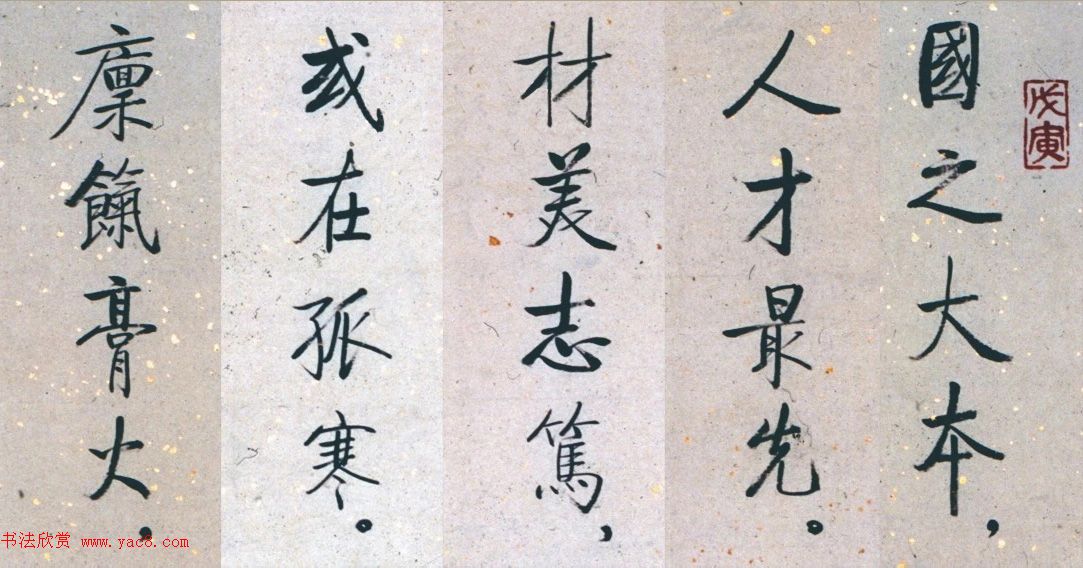 戊寅
國之大本，
人才最先。
材美志篤，
或在孤寒。
廩餼膏火，
书法欣赏 www.yac8.com